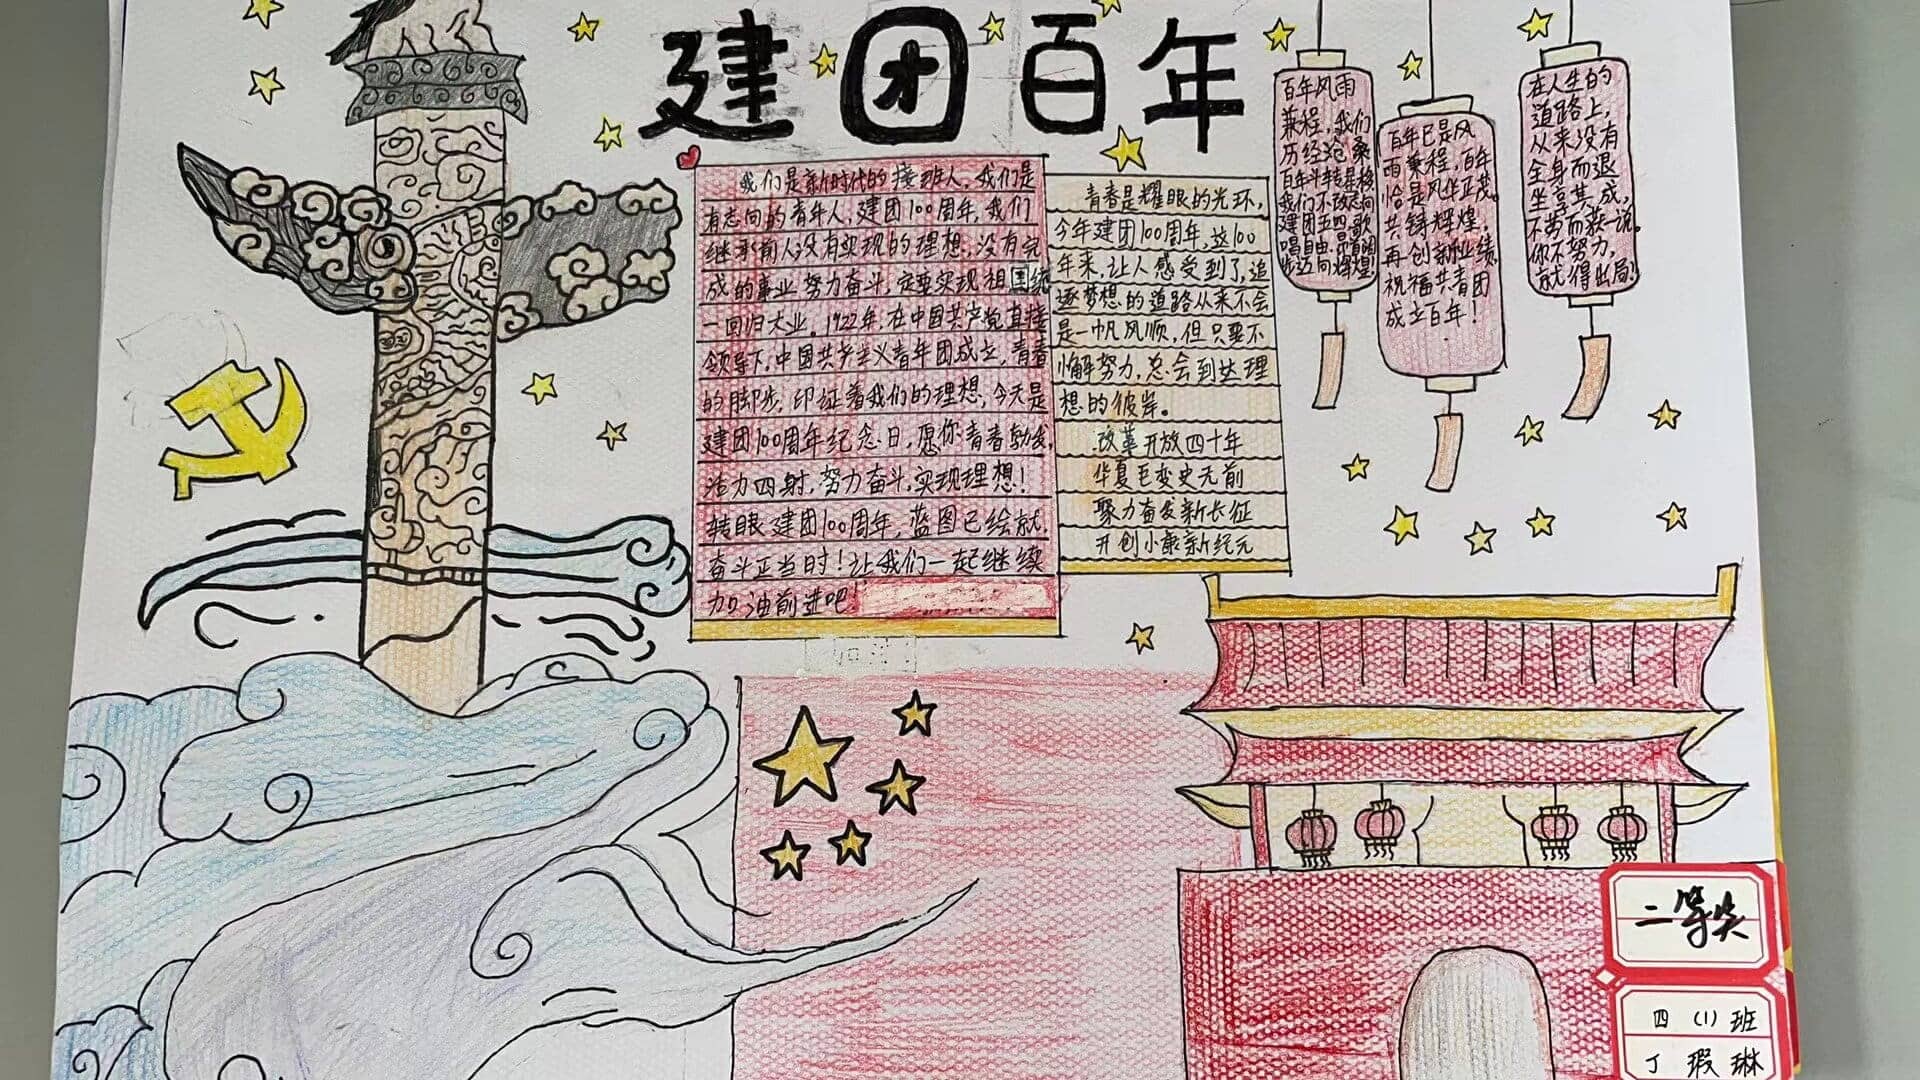 建团百年
我们是新时代的接班人，我们是
有志向的青年人，建团100周年，我们
继承前人没有实现的理想，没有完
成的事业努力奋斗，定要实现祖国统
一回归大业。1922年，在中国共产党直接
领导下，中国共产主义青年团成立，青春
的脚步，印证着我们的理想，今天是
建团100周年纪念日，愿你青春勃发，
活力四射，努力奋斗，实现理想！
转眼建团100周年，蓝图已绘就
奋斗正当时！让我们一起继续
加油前进吧！
青春是耀眼的光环，
今年建团100周年，这100
年来，让人感受到了，追
逐梦想的道路从来不会
是一帆风顺，但只要不
懈努力，总会到达理
想的彼岸。
改革开放四十年
华夏巨变史无前
聚力奋发新长征
开创小康新纪元
百年风雨
兼程，我们
历经沧桑
百年斗转星移
我们不改志向
建团五四歌
唱自由
步迈向辉煌！
百年已是风
雨兼程，百年
恰是风华正茂。
共铸辉煌，
再创新业绩
祝福共青团
成立百年！
在人生的
道路上，
从来没有
全身而退
坐享其成，
不劳而获一说。
你不努力，
就得出局！
二等奖
四（1）班
丁瑕琳